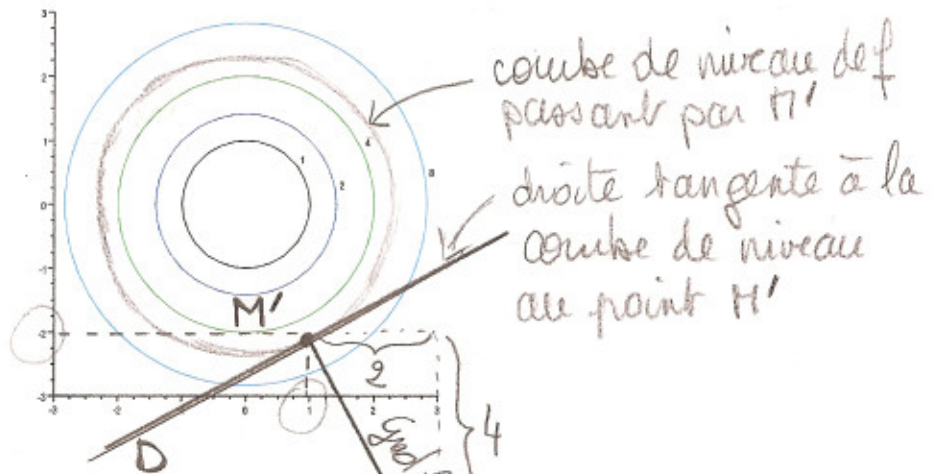 3
2
1
0
-1
-2
-3
-3 -2 -1 0 1 2 3
1
2
4
8
courbe de niveau de f
passant par M'
droite tangente à la
courbe de niveau
au point M'
M'
2
4
D